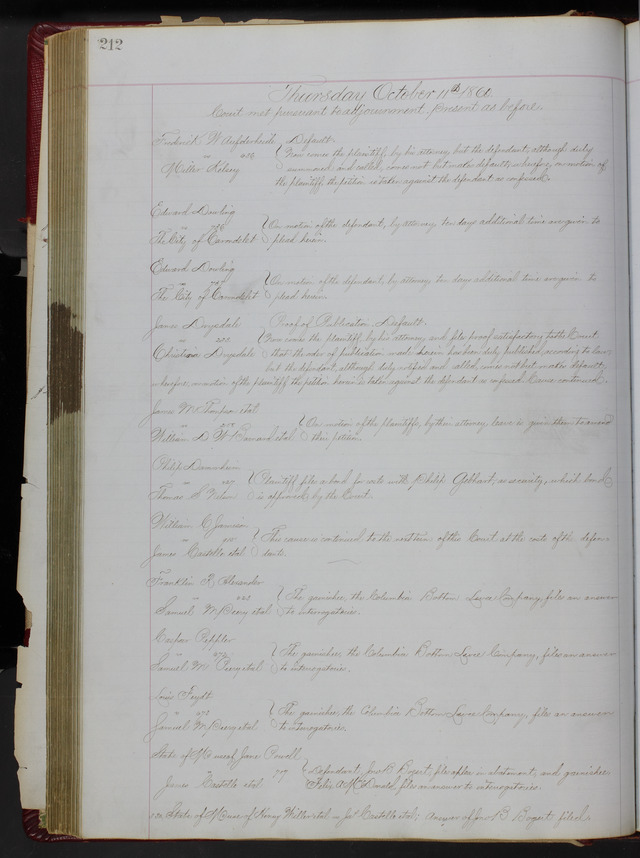 212
Thursday October 11th 1860
Court met pursuant to adjournment. Present as before.
Frederick W Aufderheide Default
Now comes the plaintiff, by his attorney, but the defendant, although duly
Miller Kelsey summoned and called, comes not but makes default; wherefore, on motion of
the plaintiff, the petition is taken against the defendant as confessed.
Edward Dowling
On motion of the defendant, by attorney, ten days additional time are given to
The City of Carondelet plead herein.
Edward Dowling
On motion of the defendant, by attorney, ten days additional time are given to
The City of Carondelet plead herein.
James Drysdale Proof of Publication Default.
Now comes the plaintiff, by his attorney, and files proof satisfactory to the Court
Christiana Drysdale that the order of publication made herein has been duly published according to law;
but the defendant, although duly notified and called, comes not but makes default;
wherefore, on motion of the plaintiff, the petition herein is taken against the defendant as confessed. Cause continued.
James M. et al
On motion of the plaintiffs, by their attorney, leave is given them to amend
William D W Barnard et al their petition.
Philip
Plaintiff files a bond for costs with Philip Gebhart, as security, which bond
Thomas S. is approved by the Court.
William C Jamison
This cause is continued to the next term of this Court at the costs of the defen-
James Castello et al dants.
Franklin Alexander
The garnishee, the Columbia Bottom Levee Company, files an answer
Samuel W. et al to interrogatories.
Caspar Peppler
The garnishee, the Columbia Bottom Levee Company, files an answer
Samuel W. et al to interrogatories.
Louis Feydt
The garnishee, the Columbia Bottom Levee Company, files an answer
Samuel W. et al to interrogatories.
State of Mo use of Jane Powell
757 Defendant, Jno P Bogert, files plea in abatement, and garnishee,
James Castello et al Felix A McDonald, files answer to interrogatories.
State of Mo use of Henry Miller et al vs Jas Castello et al; Answer of Jno P Bogert filed.